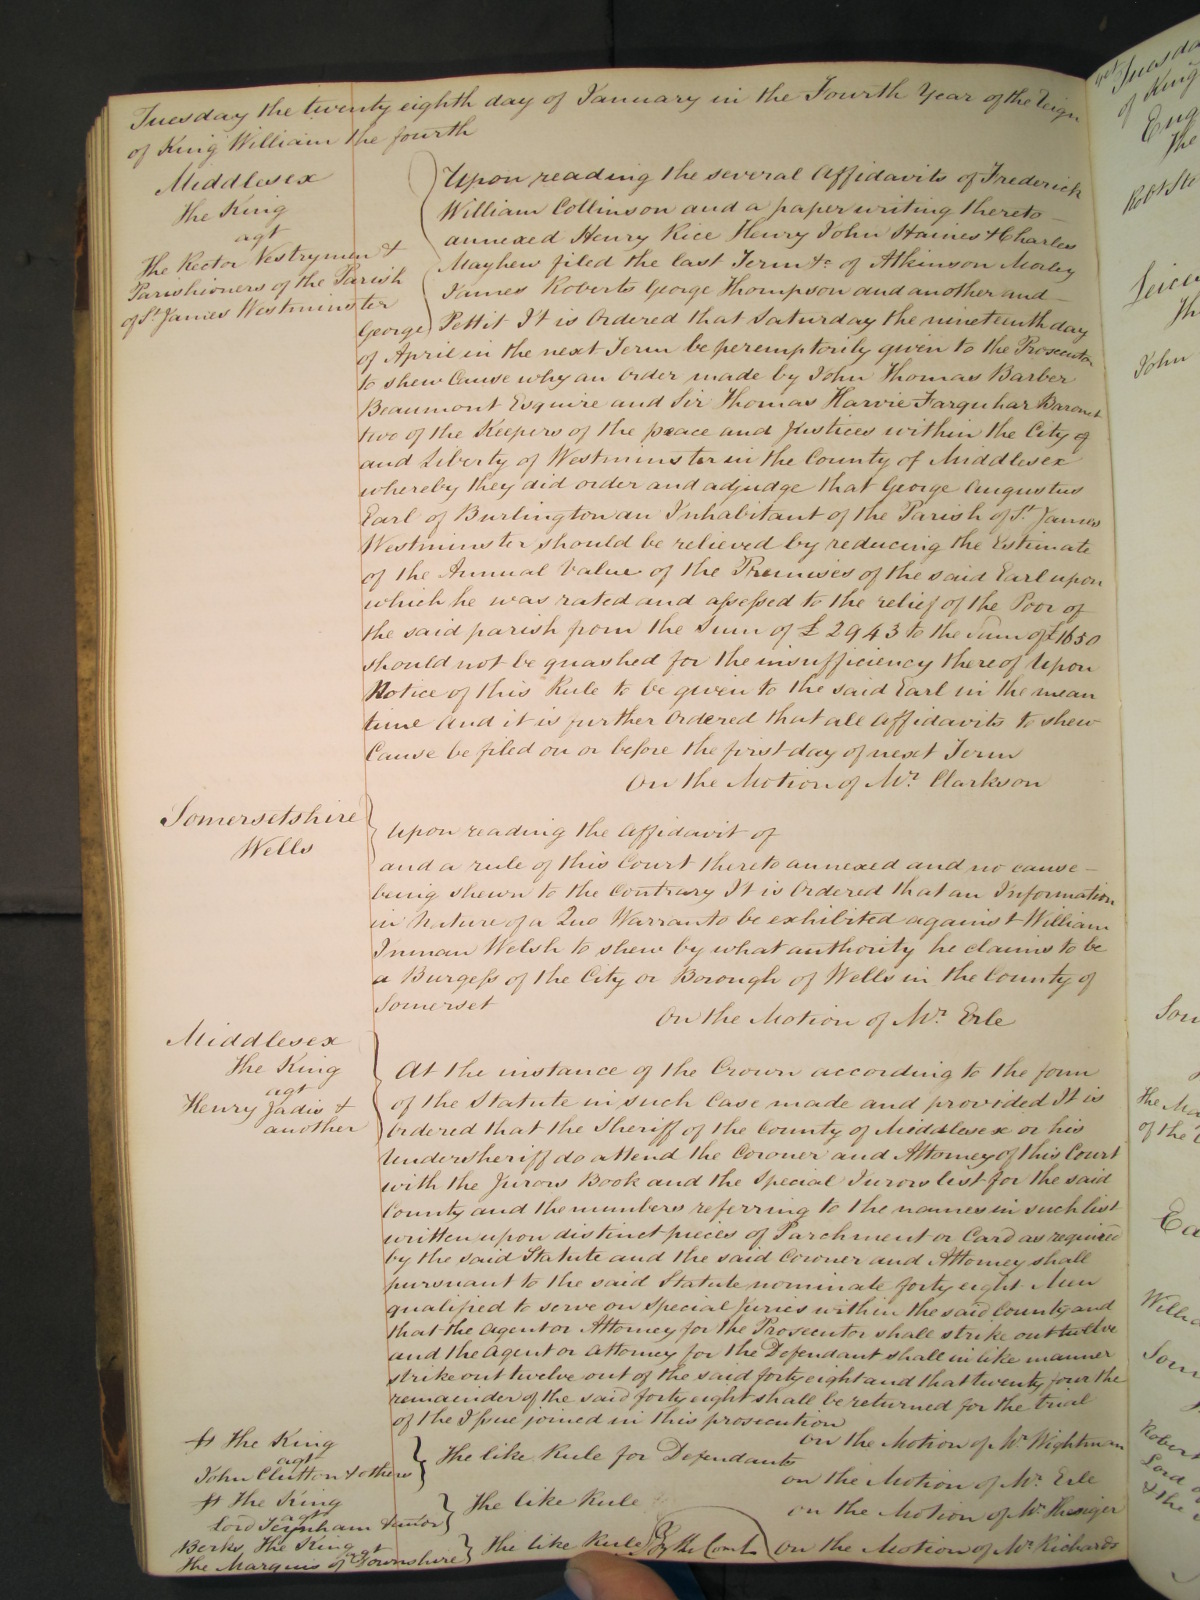 Tuesday the twenty eighth day of January in the Fourth Year of the Reign
of King William the fourth
Middlesex
The King
agt
The Rector Vestrymen &
Parishioners of the Parish
of St James Westminster
Upon reading the several Affidavits of Frederick
William Collinson and a paper writing thereto
annexed Henry Rice Henry John Haines & Charles
Mayhew filed the last Term &c of Atkinson Morley
James Roberts George Thompson and another and
George Pettit It is Ordered that Saturday the nineteenth day
of April in the next Term be peremptorily given to the Prosecutor
to shew Cause why an Order made by John Thomas Barber
Beaumont Esquire and Sir Thomas Harvie Farquhar Baronet
two of the Keepers of the peace and Justices within the City of
and Liberty of Westminster in the County of Middlesex
whereby they did order and adjudge that George Augustus
Earl of Burlington an Inhabitant of the Parish of St James
Westminster should be relieved by reducing the Estimate
of the Annual Value of the Premises of the said Earl upon
which he was rated and assessed to the relief of the Poor of
the said parish from the Sum of £2943 to the Sum of £1650
should not be quashed for the insufficiency thereof Upon
Notice of this Rule to be given to the said Earl in the mean
time And it is further Ordered that all Affidavits to shew
Cause be filed on or before the first day of next Term
On the Motion of Mr. Clarkson
Somersetshire
Wells
Upon reading the Affidavit of
and a rule of this Court thereto annexed and no cause
being shewn to the Contrary It is Ordered that an Information
in Nature of a Quo Warranto be exhibited against William
Inman Welsh to shew by what authority he claims to be
a Burgess of the City or Borough of Wells in the County of
Somerset
On the Motion of Mr. Erle
Middlesex
The King
agt
Henry Jadis &
another
At the instance of the Crown according to the form
of the Statute in such Case made and provided It is
Ordered that the Sheriff of the County of Middlesex or his
Undersheriff do attend the Coroner and Attorney of this Court
with the Jurors Book and the Special Jurors list for the said
County and the numbers referring to the names in such list
written upon distinct pieces of Parchment or Card as required
by the said Statute and the said Coroner and Attorney shall
pursuant to the said Statute nominate forty eight Men
qualified to serve on Special Juries within the said County and
that the Agent or Attorney for the Prosecutor shall strike out twelve
and the Agent or Attorney for the Defendant shall in like manner
strike out twelve out of the said forty eight and that twenty four the
remainder of the said forty eight shall be returned for the trial
of the Issue joined in this prosecution
On the Motion of Mr Wightman
The King
agt
John Clutton & others
The like Rule for Defendants
On the Motion of Mr. Erle
The King
agt
Lord Teynham & anor
The like Rule
On the Motion of Mr Thesiger
Berks, The King
agt
The Marquis of Downshire
The like Rule
By the Court
On the Motion of Mr. Richards